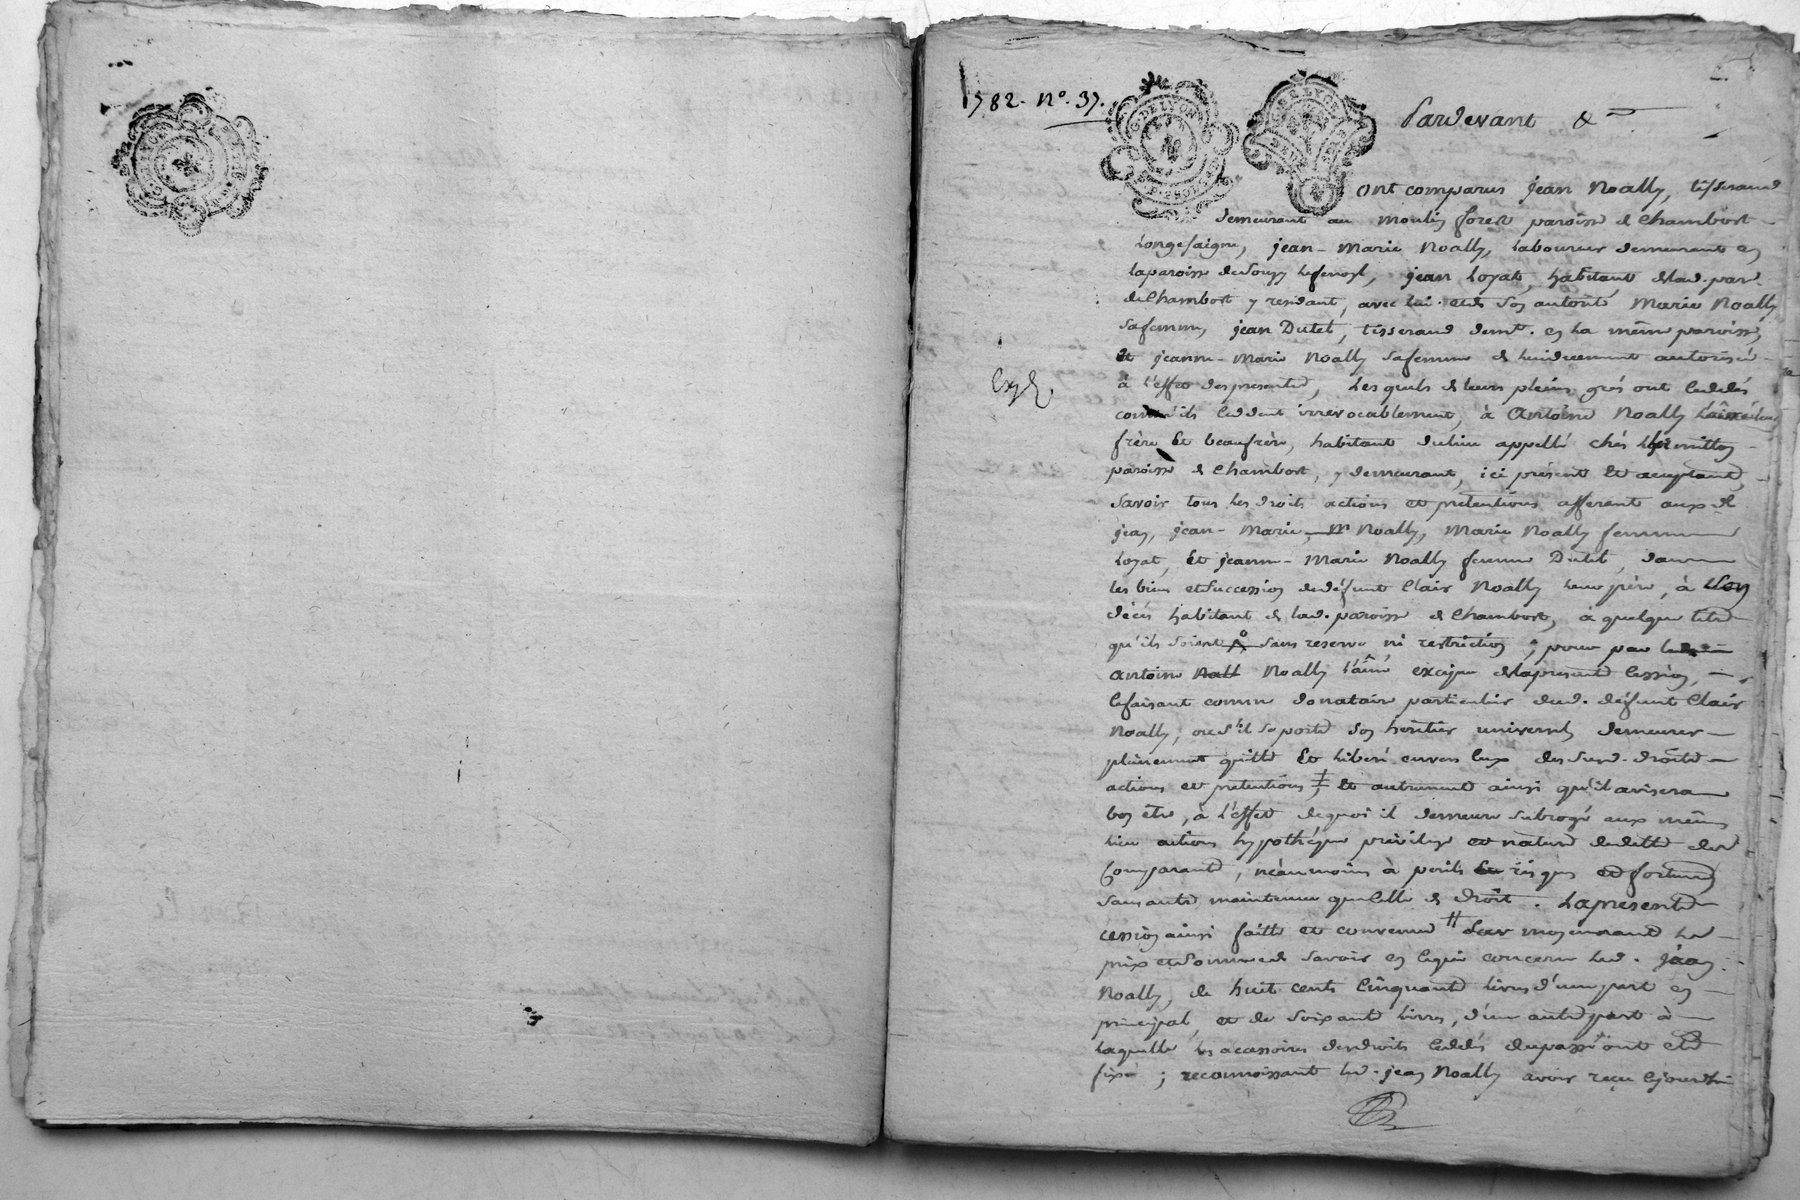 1782. N°. 37.
Pardevant &
ont comparus jean Noally, tisserand
demeurant au moulin forest paroisse de Chambost
Longesaigne, jean-Marie Noally, laboureur demeurant en
la paroisse de Souzy, jean Loyat, habitant de lad. par.
de Chambost y residant, avec lui et de son autorité Marie Noally
sa femme, jean Dutel, tisserand demt. en la même paroisse,
et jeanne-Marie Noally sa femme de lui duement autorisée
à l'effet des presentes, Lesquels de leurs pleins grés ont cédé
comme ils cedent irrevocablement, à Antoine Noally
frère et beaufrère, habitant du lieu appellé chés
paroisse de Chambost, y demeurant, ici présent et acceptant,
Savoir tous les droits actions et prétentions afferent auxd.
jean, jean-Marie Noally, Marie Noally femme
Loyat, et jeanne-Marie Noally femme Dutel, dans
les biens et succession de défunt Clair Noally leur père, à son
décès habitant de lad. paroisse de Chambost, à quelque titre
qu'ils soient sans reserve ni restriction; pour par
antoine Noally l'aîné exciper de la presente cession,
le faisant comme donataire particulier dud. défunt Clair
Noally, ou s'il se porte son héritier universel, demeurer
pleinement quitte et liberé envers eux des susd. droits
actions et pretentions, et autrement ainsi qu'il avisera
bon être, à l'effet de quoi il demeure subrogé aux mêmes
lieu actions hypothéque privilege et nature de dette des
Comparants, néanmoins à perils risques et fortunes
sans autre maintenue que celle de droit. La présente
cession ainsi faitte et convenue moyennant les
prix et sommes de savoir en ce qui concerne led. jean
Noally, de huit cents cinquante livres d'une part en
principal, et de soixante livres, d'une autre part à
laquelle les accessoires des droits cédés du passé ont été
fixé; reconnoissant led. jean Noally avoir reçu cejourd'hui